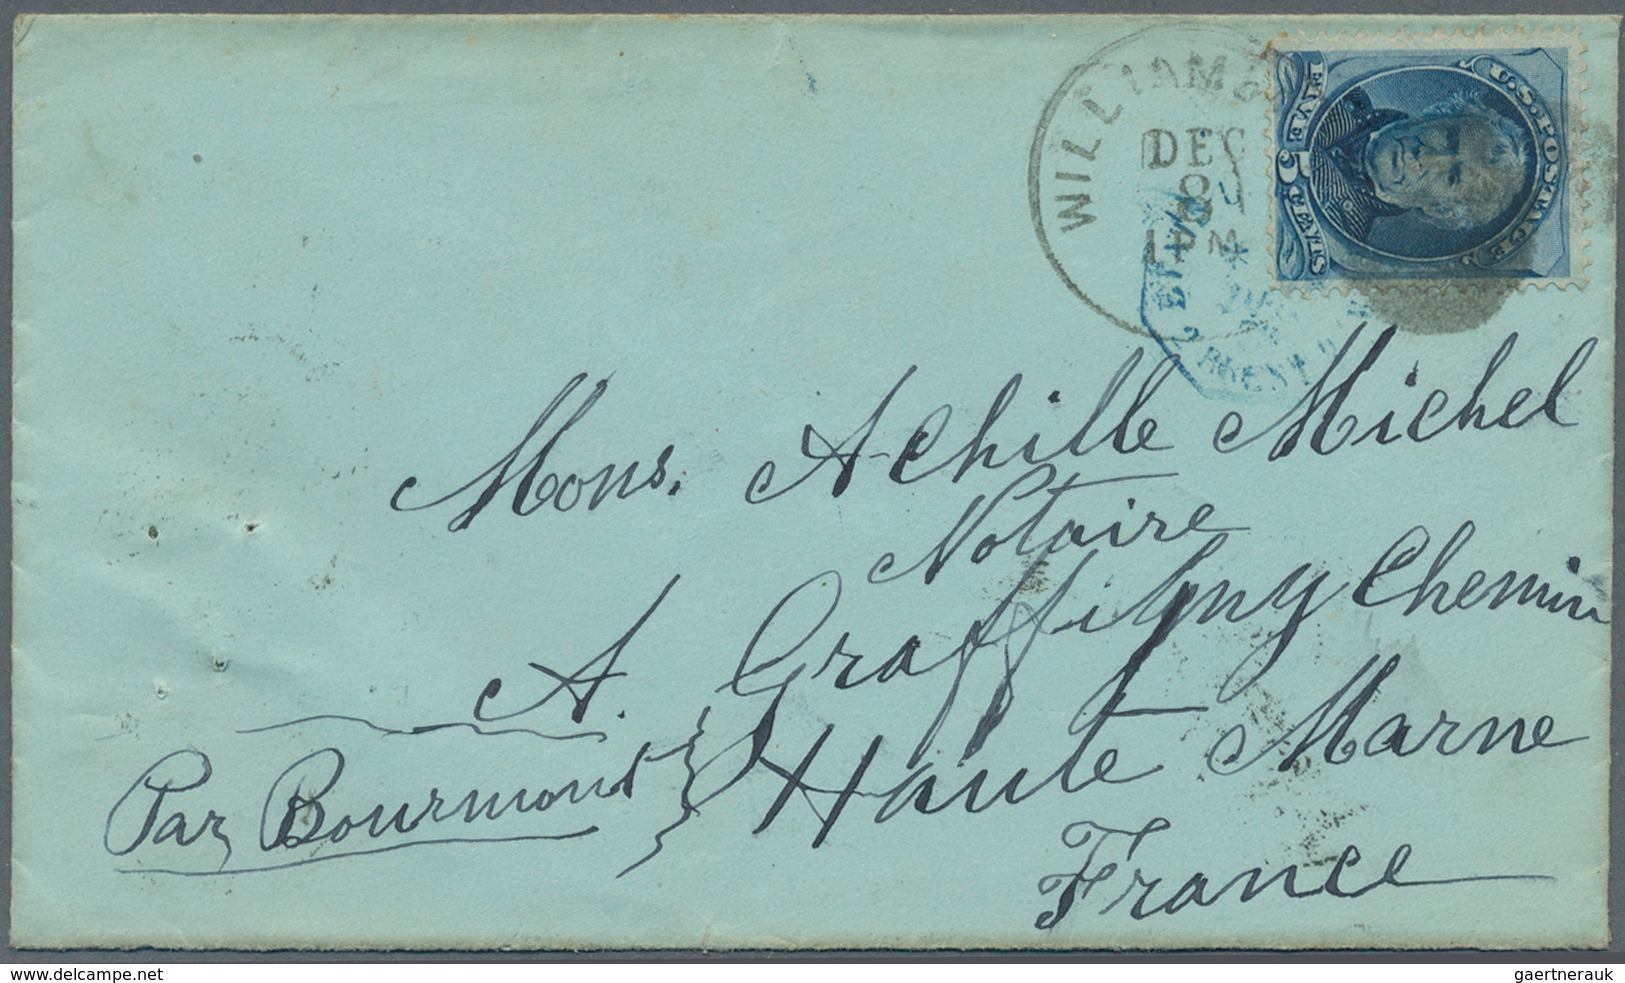 WILLIAMS
DEC
8
1 PM
U.S. POSTAGE
FIVE 5 CENTS
Mons. Achille Michel
Notaire
A. Graffigny Chemin
Par Bourmont
Haute Marne
France
www.delcampe.net
gaertnerauk